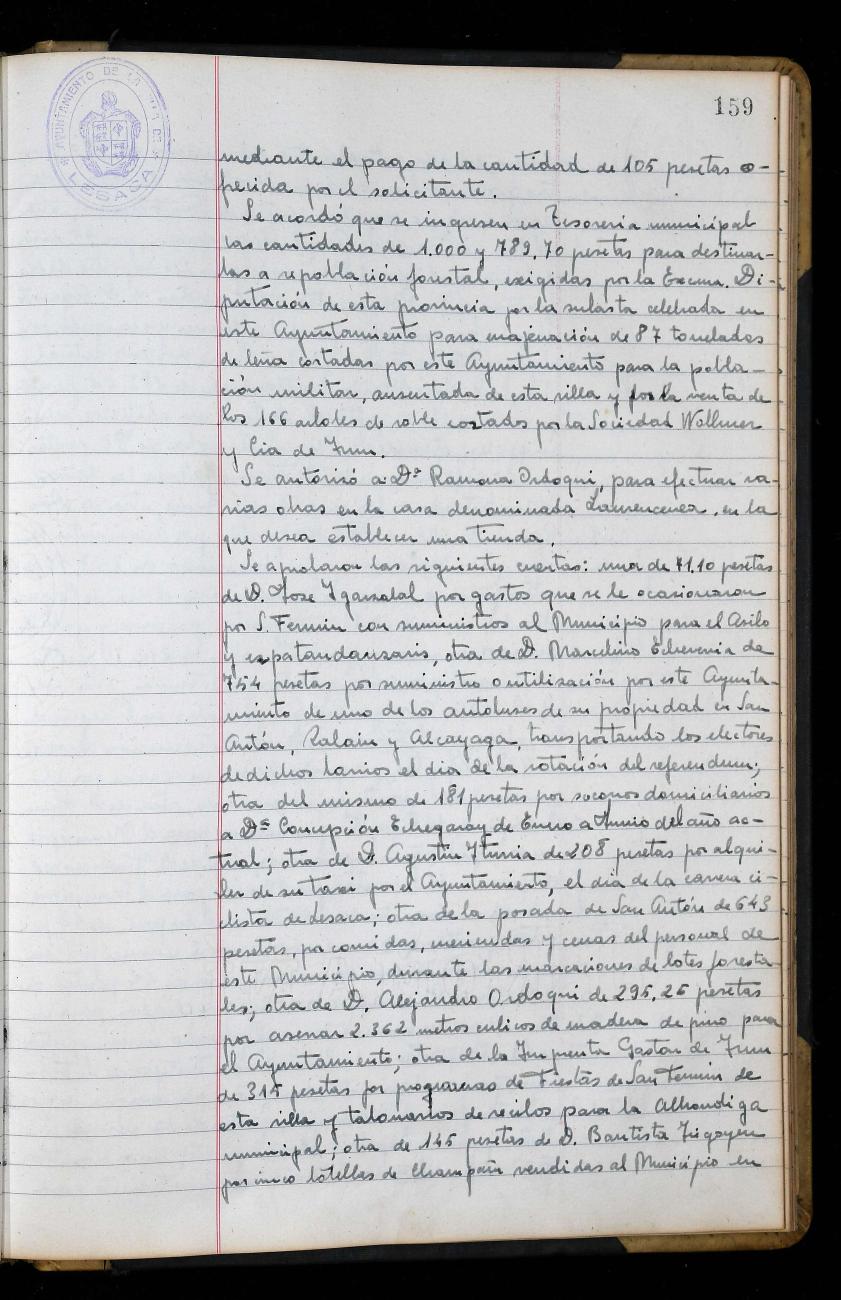 159
AYUNTAMIENTO DE LA VILLA DE
LESACA
mediante el pago de la cantidad de 105 pesetas o-
frecida por el solicitante.
Se acordó que se ingresen en Tesoreria municipal
las cantidades de 1.000 y 789,70 pesetas para destinar-
las a repoblación forestal, exigidas por la Excma. Di-
putación de esta provincia por la subasta celebrada en
este Ayuntamiento para enajenación de 87 toneladas
de leña cortadas por este Ayuntamiento para la pobla-
ción militar, ausentada de esta villa y por la venta de
los 166 arboles de roble cortados por la Sociedad Wollmer
y Cia de Irun.
Se autorizó a Dª Ramona Ordoqui, para efectuar va-
rias obras en la casa denominada Laurencenea, en la
que desea establecer una tienda.
Se aprobaron las siguientes cuentas: una de 71,10 pesetas
de D. Jose Igarzabal por gastos que se le ocasionaron
por S. Fermin con suministros al Municipio para el Asilo
y ezpatandanzaris, otra de D. Marcelino Echeverria de
754 pesetas por suministro o utilización por este Ayunta-
miento de uno de los autobuses de su propiedad en San
Antón, Zalain y Alcayaga, transportando los electores
de dichos barrios el dia de la votación del referendum;
otra del mismo de 181 pesetas por socorros domiciliarios
a Dª Concepción Echegaray de Enero a Junio del año ac-
tual; otra de D. Agustin Iturria de 208 pesetas por alqui-
ler de su taxi por el Ayuntamiento, el dia de la carrera ci-
clista de Lesaca; otra de la posada de San Antón de 643
pesetas, por comidas, meriendas y cenas del personal de
este Municipio, durante las marcaciones de lotes foresta-
les; otra de D. Alejandro Ordoqui de 295,25 pesetas
por aserrar 2.362 metros cubicos de madera de pino para
el Ayuntamiento; otra de la Imprenta Gaston de Irun
de 315 pesetas por programas de Fiestas de San Fermin de
esta villa y talonarios de recibos para la Alhondiga
municipal; otra de 145 pesetas de D. Bautista Irigoyen
por cinco botellas de Champañ vendidas al Municipio en